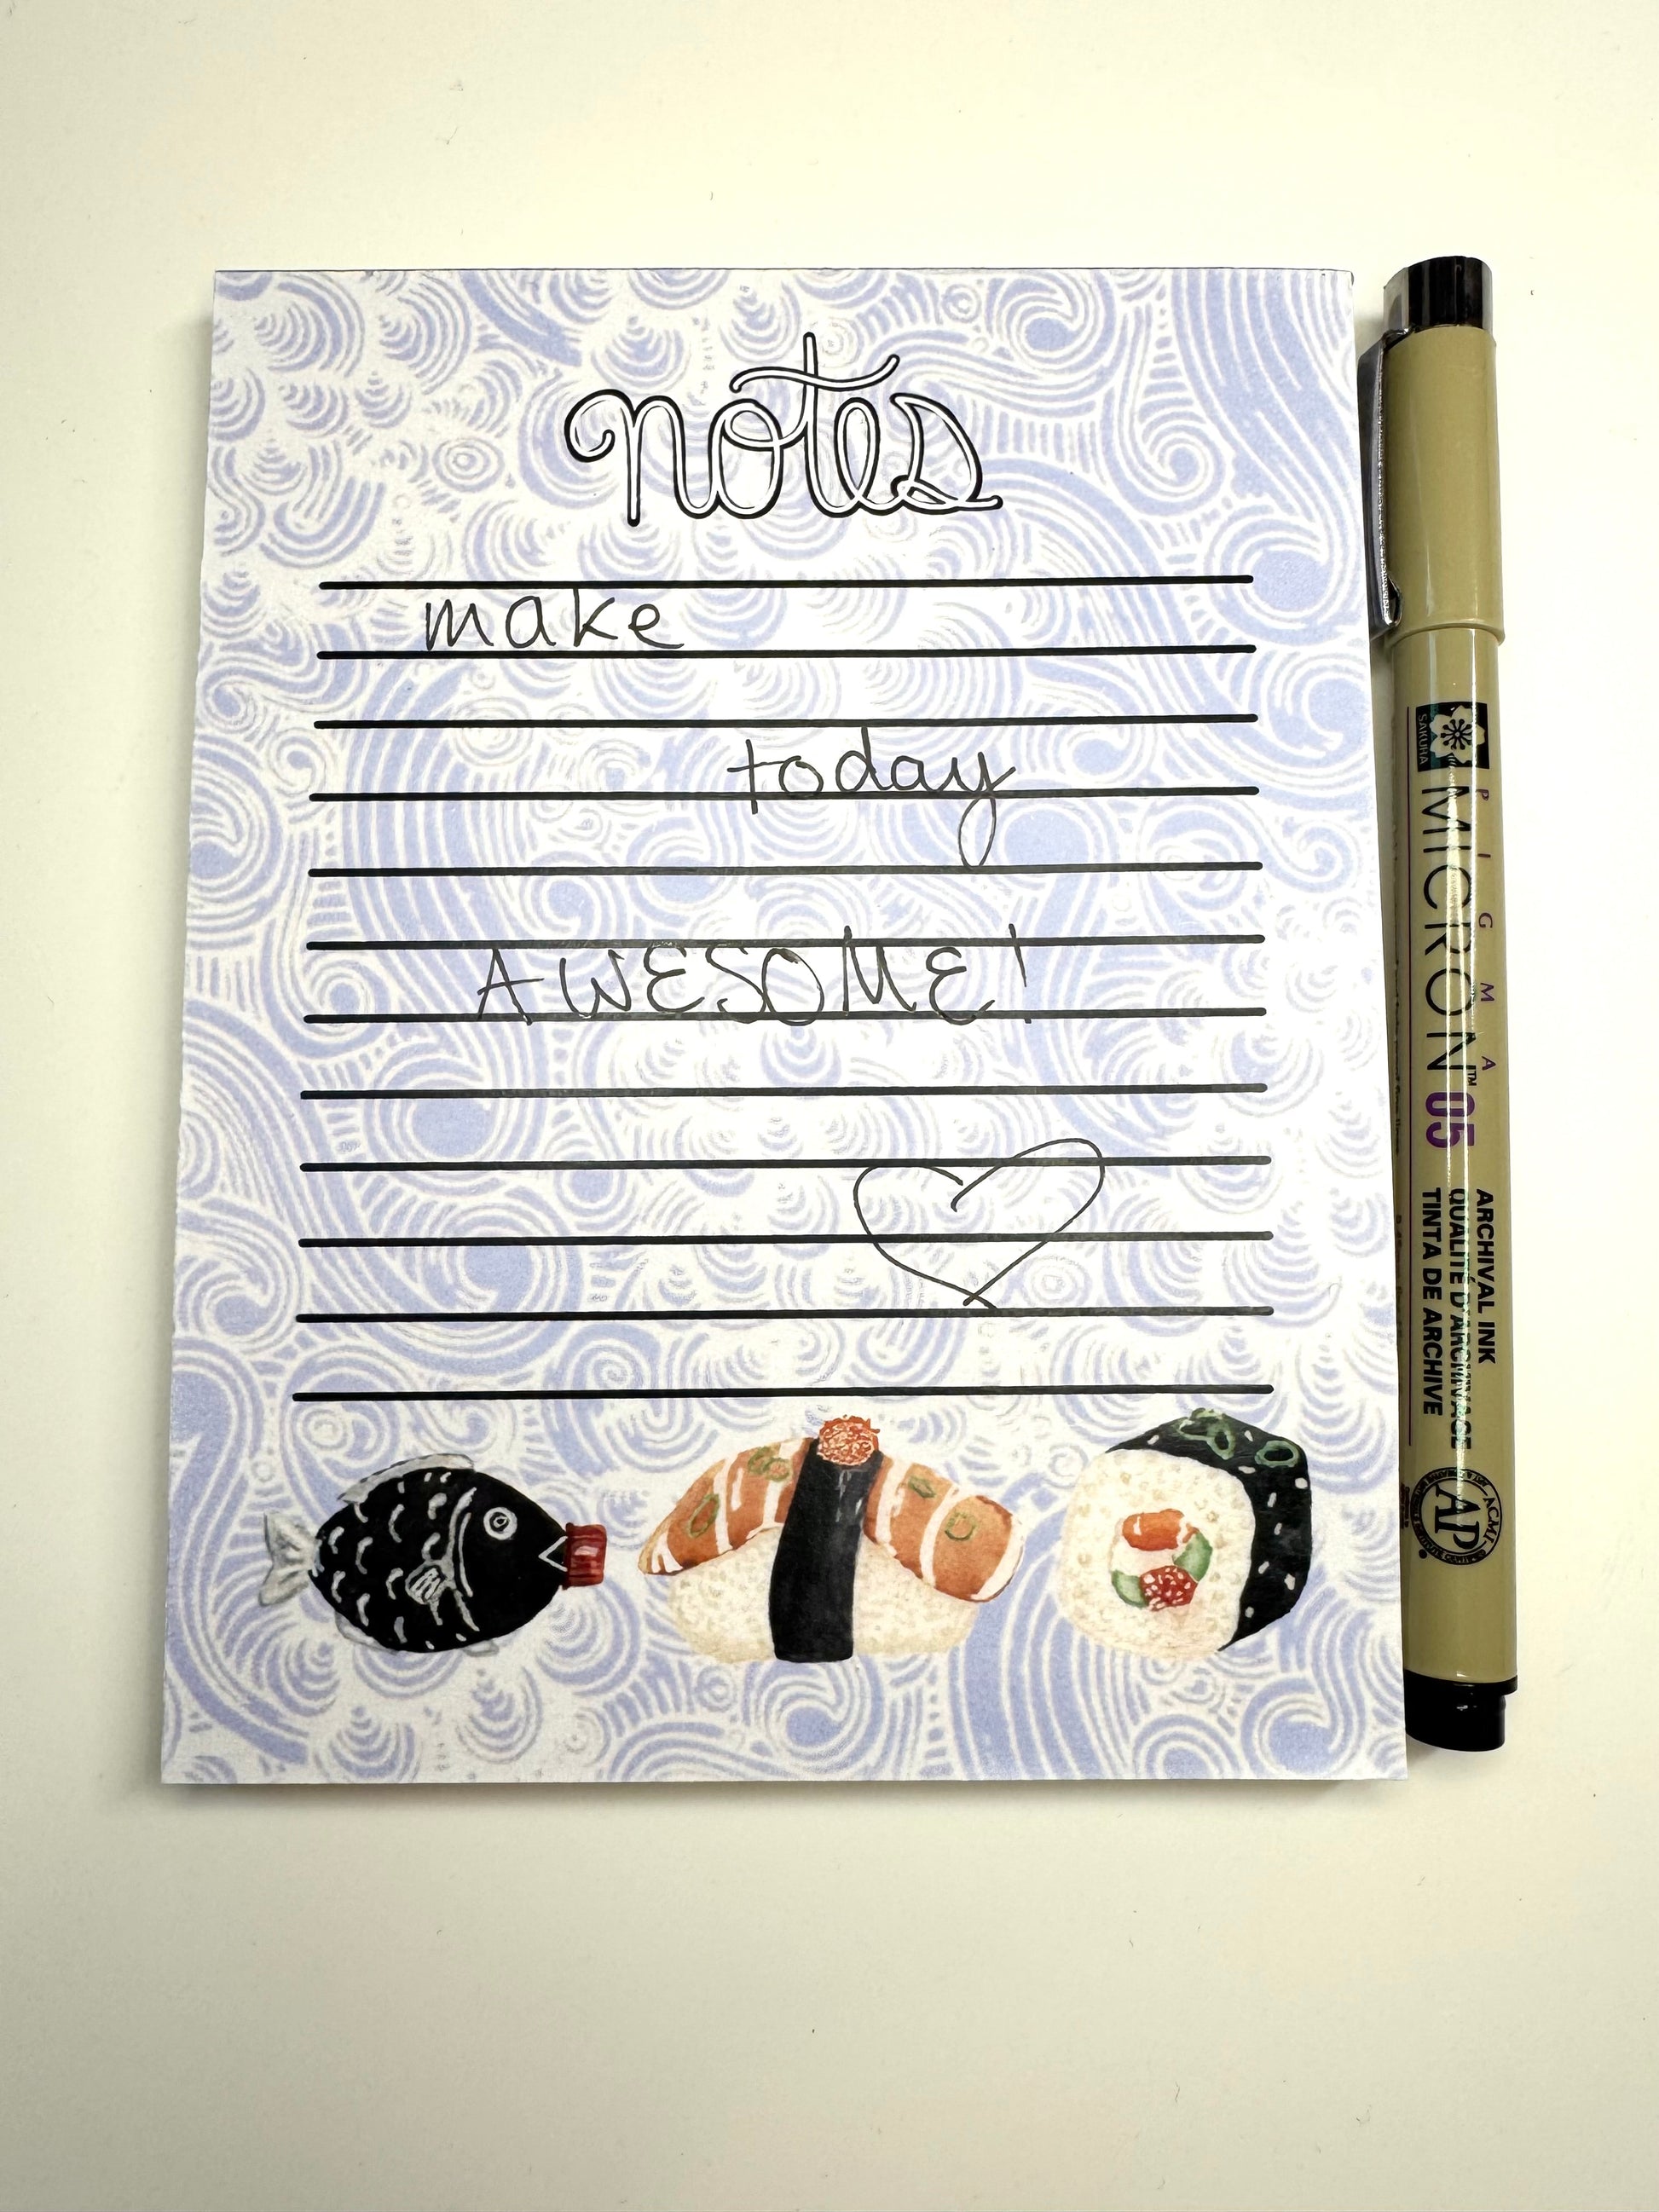 notes
make
today
AWESOME!
SAKURA
PIGMA
MICRON™ 05
ARCHIVAL INK
QUALITÉ D'ARCHIVAGE
TINTA DE ARCHIVE
ACMI
AP